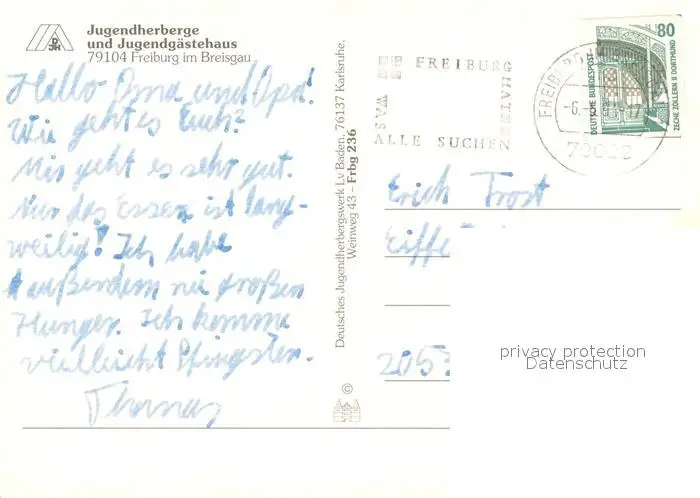 Jugendherberge
und Jugendgästehaus
79104 Freiburg im Breisgau
Hallo Oma und Opa!
Wie geht es Euch?
Mir geht es sehr gut.
Nur das Essen ist lang-
weilig! Ich habe
außerdem nie großen
Hunger. Ich komme
vielleicht Pfingsten.
Thomas
Deutsches Jugendherbergswerk Lv Baden, 76137 Karlsruhe,
Weinweg 43 – Frbg 236
©
FREIBURG
HAT
WAS
ALLE SUCHEN
FREIB
-6.
17
DEUTSCHE BUNDESPOST
80
ZECHE ZOLLERN II DORTMUND
Erich Trost
Eiffe
205
privacy protection
Datenschutz